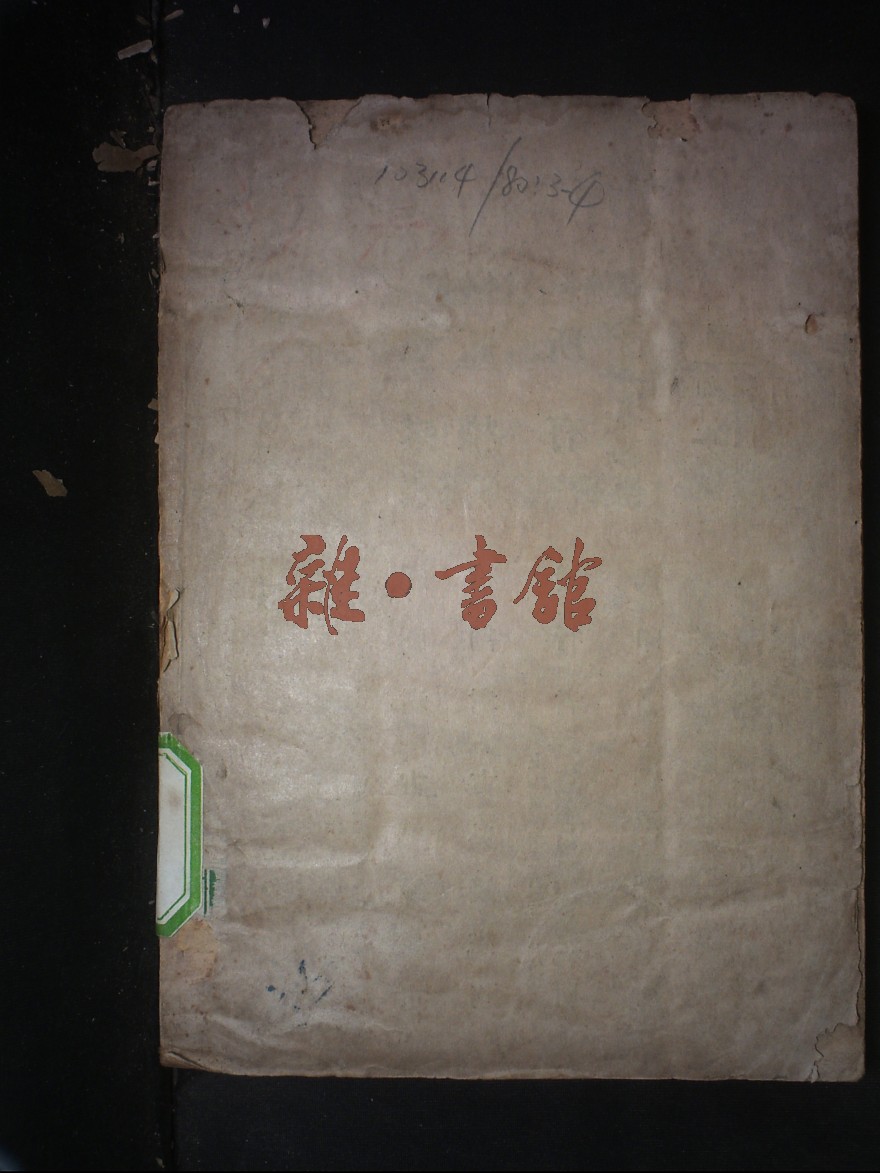 103114/8013-4
雜·書館